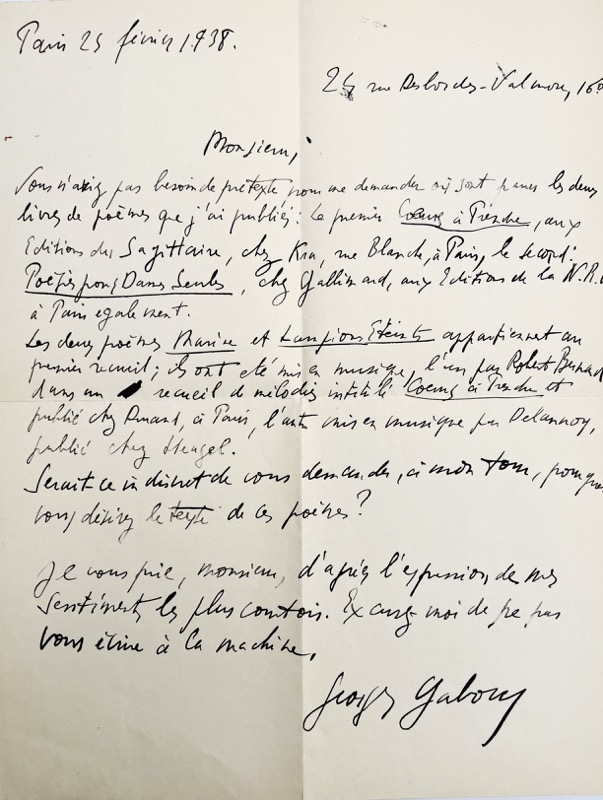 Paris 25 février 1938.
25 rue Desbordes-Valmore, 16e
Monsieur,
Vous n'aviez pas besoin de prétexte pour me demander où sont parus les deux
livres de poèmes que j'ai publiés: Le premier Coeurs à Prendre, aux
Editions du Sagittaire, chez Kra, rue Blanche, à Paris, le second:
Poésies pour Dames Seules, chez Gallimard, aux Editions de la N.R.
à Paris également.
Les deux poèmes Marine et Lampions Eteints appartiennent au
premier recueil; ils ont été mis en musique, l'un par Robert Bernard
dans un recueil de mélodies intitulé Coeurs à Prendre et
publié chez Durand, à Paris, l'autre mis en musique par Delannoy,
publié chez Heugel.
Serait-ce indiscret de vous demander, à mon tour, pourquoi
vous désirez le texte de ces poèmes?
Je vous prie, monsieur, d'agréer l'expression de mes
sentiments les plus courtois. Excusez-moi de ne pas
vous écrire à la machine.
Georges Gabory